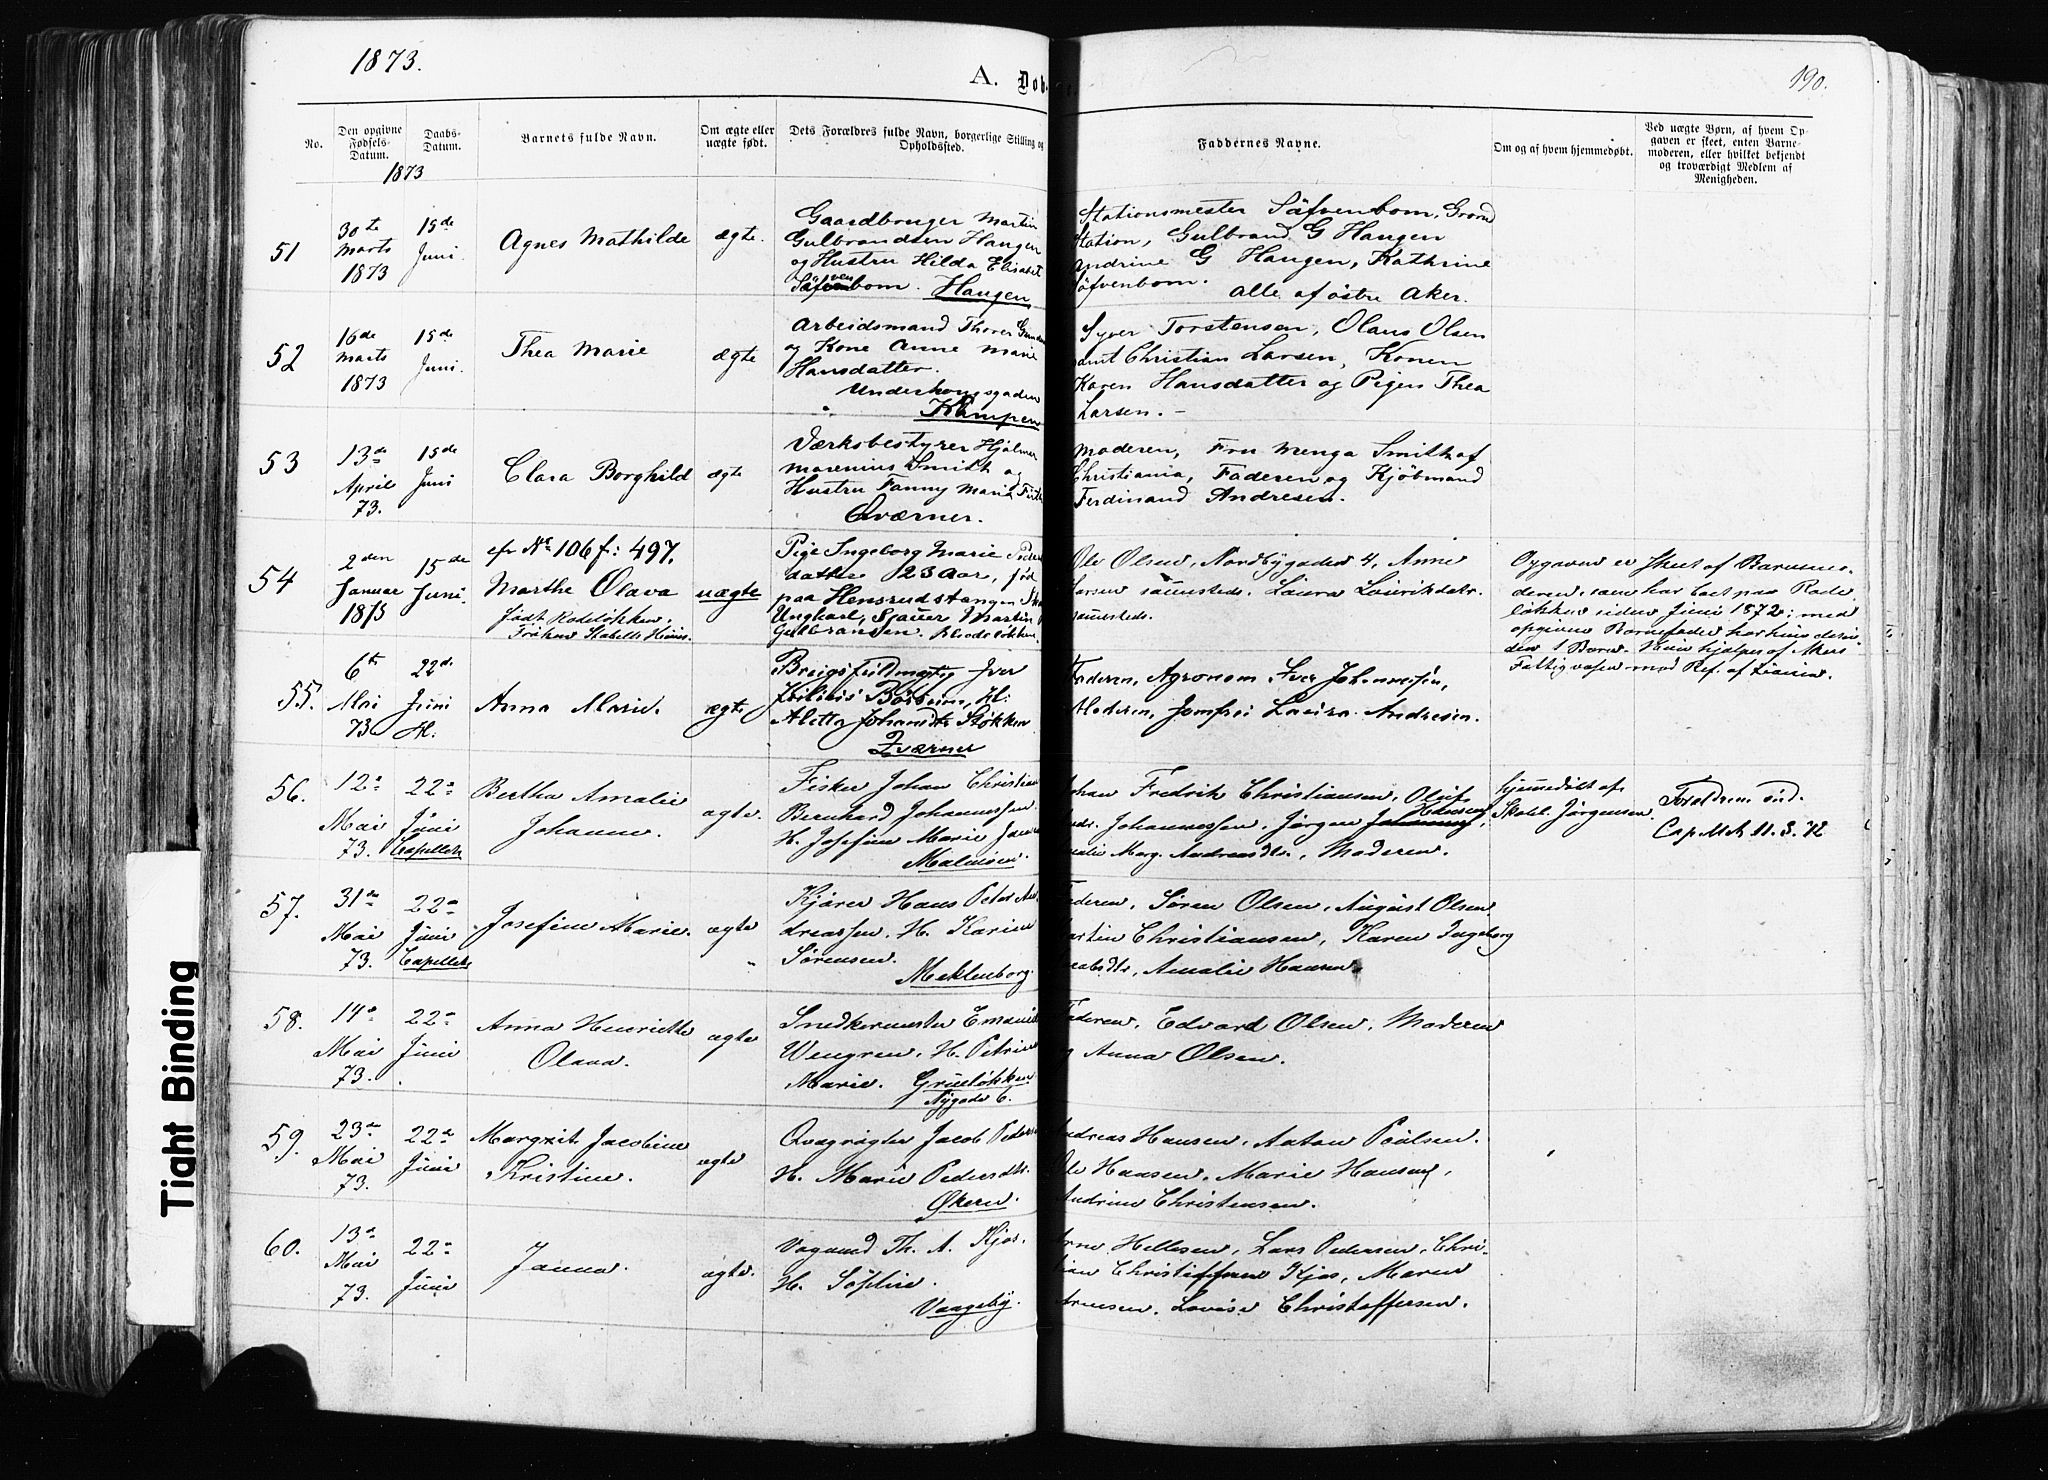 1873.
A. Døb
190.
No.
Den opgivne Fødsels-Datum.
Daabs-Datum.
Barnets fulde Navn.
Om ægte eller uægte født.
Dets Forældres fulde Navn, borgerlige Stilling og Opholdssted.
Faddernes Navne.
Om og af hvem hjemmedøbt.
Ved uægte Børn, af hvem Op-
gaven er skeet, enten Barne-
moderen, eller hvilket bekjendt
og troværdigt Medlem af
Menigheden.
1873
51
30te Marts 1873
15de Juni.
Agnes Mathilde
ægte.
Gaardbruger Martin
Gulbrandsen Haugen
og Hustru Hilda Elisabet
Säfvenbom. Haugen
Stationsmester Säfvenbom, Grorud
Station, Gulbrand G Haugen
Andrine G Haugen, Kathrine
Säfvenbom. Alle af østre Aker.
52
16de Marts 1873
15de Juni.
Thea Marie
ægte
Arbeidsmand Thorer
og Kone Anne Marie
Hansdatter.
Kampen
Syver Torstensen, Olaus Olsen
samt Christian Larsen, Konen
Karen Hansdatter og Pigen Thea
Larsen. -
53
13de April 73.
15de Juni
Clara Borghild
ægte
Værksbestyrer Hjalmar
Marenius Smith og
Hustru Fanny Marie
Qværner.
Moderen, Fru Menga Smith af
Christiania, Faderen og Kjøbmand
Ferdinand Andresen.
54
2den Januar 1873
15de Juni.
cfr No 106 f: 497.
Marthe Olava
født Rodeløkken,
uægte
Pige Ingeborg Marie Peder
datter 23 Aar, fød
paa Hensrudstangen
Ungkarl, Martin
Gulbransen. Rodeløkken.
Ole Olsen, Nordbygaden 4, Anne
Larsen sammesteds. Laura
sammesteds.
Opgaven er skeet af Barnemo-
deren, som har boet paa Rode
løkken siden Juni 1872; med
opgivne Barnefader har hun desu-
den 1 Barn. hjælpes af Akers
Fattigvæsen mod Ref. af
55.
6te Mai 73
22de Juni H.
Anna Marie.
ægte
Iver
Johansdtr Løkken
Qværner
Faderen, Agronom Iver Johannesen,
Moderen, Jomfru Laura Andresen.
56.
12te Mai 73.
22de Juni Capellet
Bertha Amalie
Johanne.
ægte.
Fisker Johan Christian
Bernhard Johannessen.
H. Josefine Marie
Malmøen.
Johan Fredrik Christiansen, Oluf
Andr. Johannessen, Jørgen Hansen,
Amalie Marg. Andreasdtr., Moderen.
hjemmedøbt af
Skolel. Jørgensen
Forældrene
57.
31te Mai 73.
22de Juni Capellet
Josefine Marie.
ægte
Kjører Hans Peter An
dreassen. H. Karine
Sørensen.
Meklenborg.
Faderen, Søren Olsen, August Olsen
Martin Christiansen, Karen Ingeborg
Jacobsdtr, Amalie Hansen
58.
14de Mai 73.
22de Juni
Anna Henriette
Olava.
ægte
Snedkermester Emanuel
Wengren. H. Petrine
Marie. Grueløkken
Nygade 6.
Faderen, Edvard Olsen, Moderen
og Anna Olsen.
59.
23de Mai 73.
22de Juni
Margrit Jacobine
Kristine.
ægte
Qvægrøgter Jacob Peders
H. Marie Pedersdtr.
Økern.
Andreas Hansen, Anton Poulsen.
Ole Hansen, Marie Hansen,
Andrine Christensen.
60.
13de Mai 73.
22de Juni
Janna.
ægte.
Vognmd Th. A. Kjos.
H. Sophie.
Vaageby.
Arne Hellesen, Lars Pedersen, Chri-
stian Christoffersen Kjos, Maren
Arnesen, Lovise Christoffersen.
Tight Binding